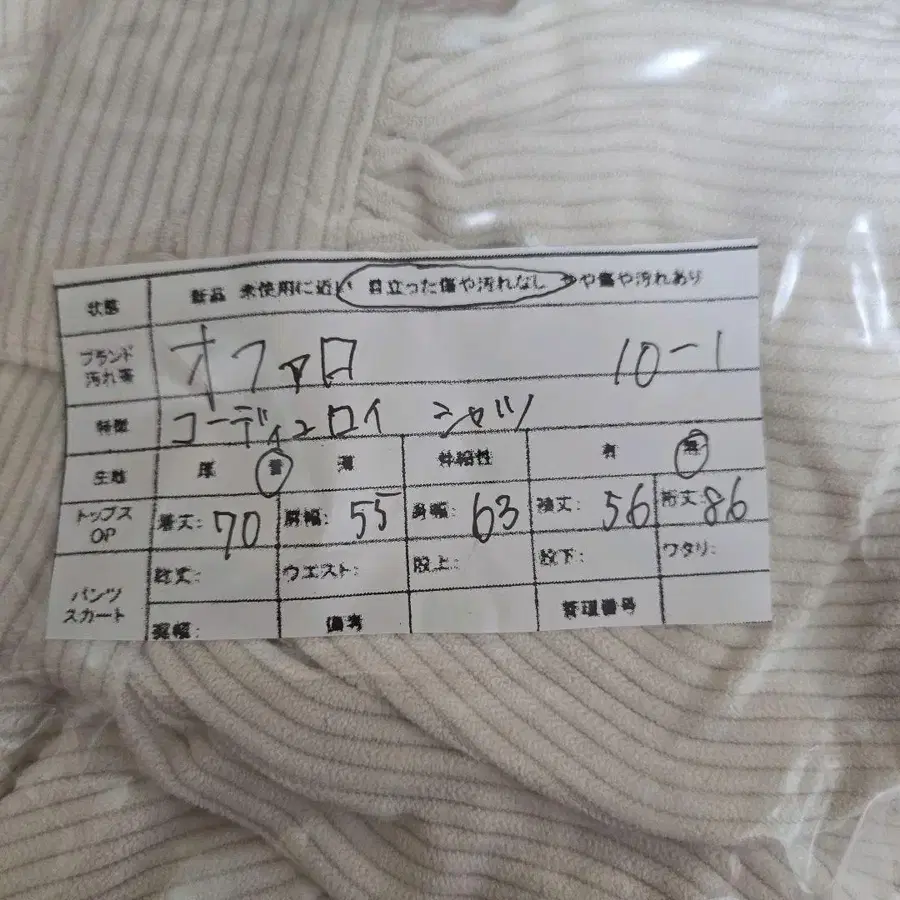 状態 新品 未使用に近い 目立った傷や汚れなし やや傷や汚れあり
ブランド 汚れ等 オファロ 10-1
特徴 コーディュロイ シャツ
生地 厚 普 薄 伸縮性 有 無
トップス OP 着丈: 70 肩幅: 55 身幅: 63 袖丈: 56 裄丈: 86
パンツ スカート 総丈: ウエスト: 股上: 股下: ワタリ:
裾幅: 備考 管理番号